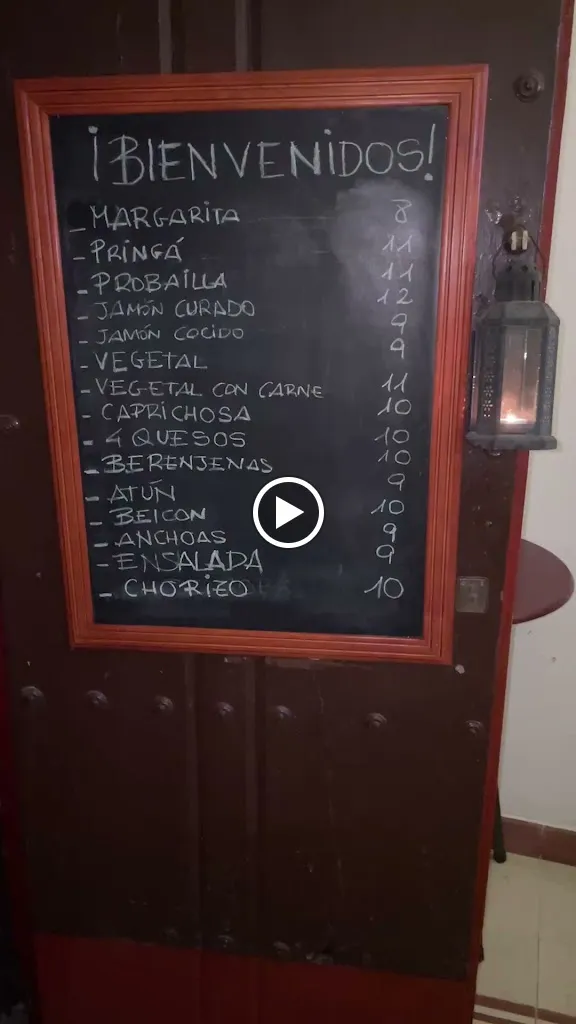 ¡BIENVENIDOS!
- MARGARITA 8
- PRINGÁ 11
- PROBAILLA 11
- JAMÓN CURADO 12
- JAMÓN COCIDO 9
- VEGETAL 9
- VEGETAL CON CARNE 11
- CAPRICHOSA 10
- 4 QUESOS 10
- BERENJENAS 10
- ATÚN 9
- BEICON 10
- ANCHOAS 9
- ENSALADA 9
- CHORIZO 10